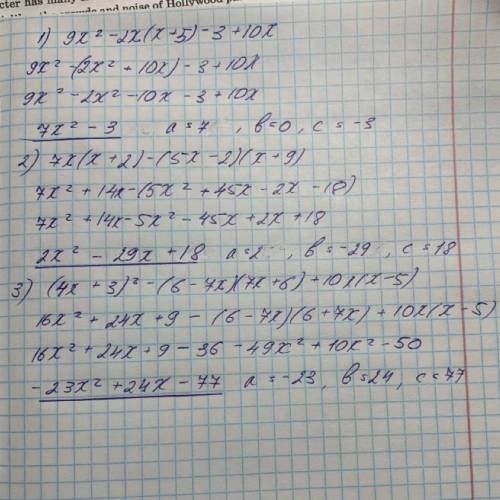 cter has many
the crowds and noise of Hollywood p
1) 9x² - 2x(x+5) - 3 + 10x
9x² - (2x² + 10x) - 3 + 10x
9x² - 2x² - 10x - 3 + 10x
7x² - 3 a = 7 , b=0, c = -3
2) 7x(x+2) - (5x - 2)(x + 9)
7x² + 14x - (5x² + 45x - 2x - 18)
7x² + 14x - 5x² - 45x + 2x + 18
2x² - 29x + 18 a = 2 , b = -29 , c = 18
3) (4x + 3)² - (6 - 7x)(7x + 6) + 10x(x - 5)
16x² + 24x + 9 - (6 - 7x)(6 + 7x) + 10x(x - 5)
16x² + 24x + 9 - 36 - 49x² + 10x² - 50
-23x² + 24x - 77 a = -23, b = 24, c = 77